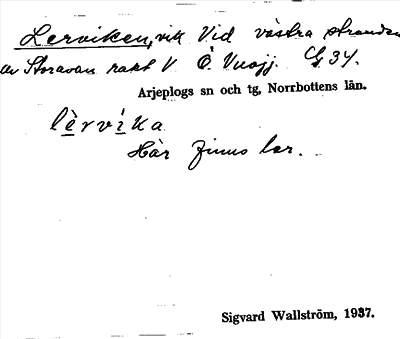 Lerviken, vik vid västra stranden
av Storavan rakt V. Ö. Vuojj. G 34.
Arjeplogs sn och tg, Norrbottens län.
lèrvìka
Här finns ler.
Sigvard Wallström, 1937.